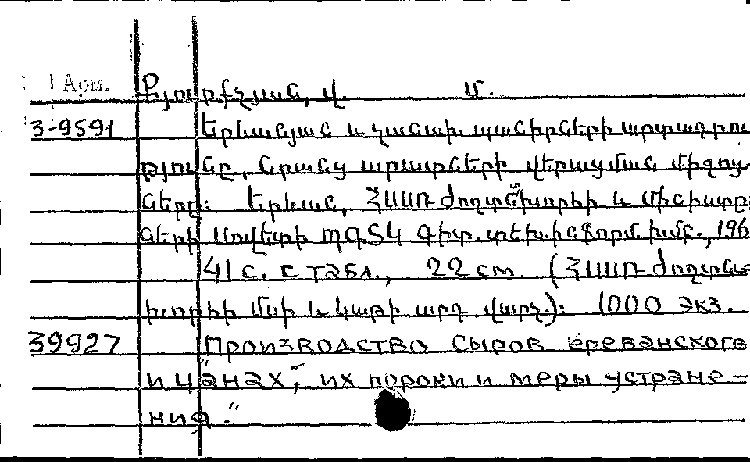 Арм. Քյուրքչյան, Վ. Մ.
3-9591 Երևանյան և չանախ պանիրների արտադրու
թյունը, նրանց արատների վերացման միջոց
ները: Երևան, ՀՍՍՌ ժողտնտխորհի և Մինիստր
ների Սովետի ՊԳՏԿ Գիտ. տեխ. ինֆորմ. ինստ., 196
41 с. с табл., 22 cm. (ՀՍՍՌ ժողտնտ
խորհի մսի և կաթի արդ վարչ.): 1000 экз.
39927 Производство сыров "ереванского
и "чанах", их пороки и меры устране-
ния."